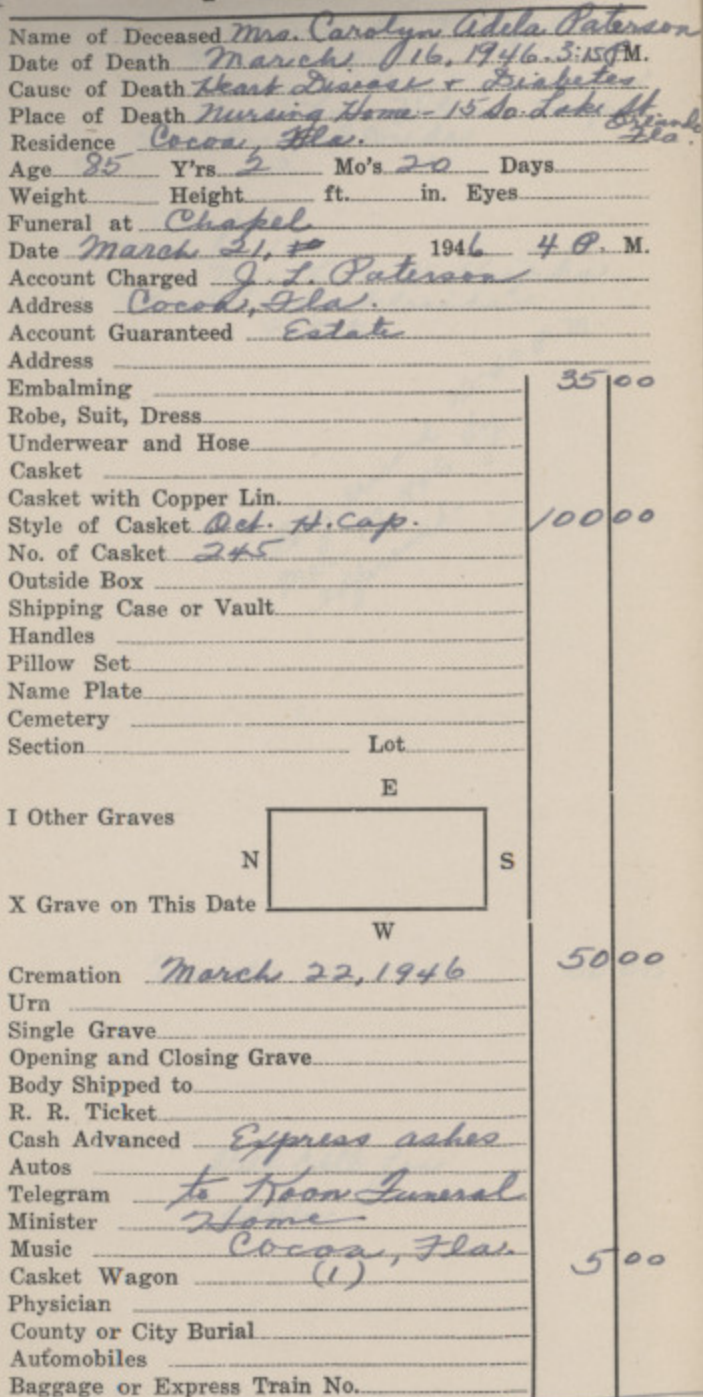 Name of Deceased Mrs. Carolyn Adela Paterson
Date of Death March 16, 1946. 3:15 P M.
Cause of Death Heart Disease + Diabetes
Place of Death Nursing Home - 15 So. Lake St. Orlando Fla.
Residence Cocoa, Fla.
Age 85 Y'rs 2 Mo's 20 Days
Weight Height ft. in. Eyes
Funeral at Chapel
Date March 21, 1946 4 P. M.
Account Charged J. L. Paterson
Address Cocoa, Fla.
Account Guaranteed Estate
Address
Embalming 35 00
Robe, Suit, Dress
Underwear and Hose
Casket
Casket with Copper Lin.
Style of Casket Oct. H. Cap. 100 00
No. of Casket 245
Outside Box
Shipping Case or Vault
Handles
Pillow Set
Name Plate
Cemetery
Section Lot
E
I Other Graves
N S
X Grave on This Date
W
Cremation March 22, 1946 50 00
Urn
Single Grave
Opening and Closing Grave
Body Shipped to
R. R. Ticket
Cash Advanced Express ashes
Autos
Telegram to Koon Funeral
Minister Home
Music Cocoa, Fla. 5 00
Casket Wagon (1)
Physician
County or City Burial
Automobiles
Baggage or Express Train No.